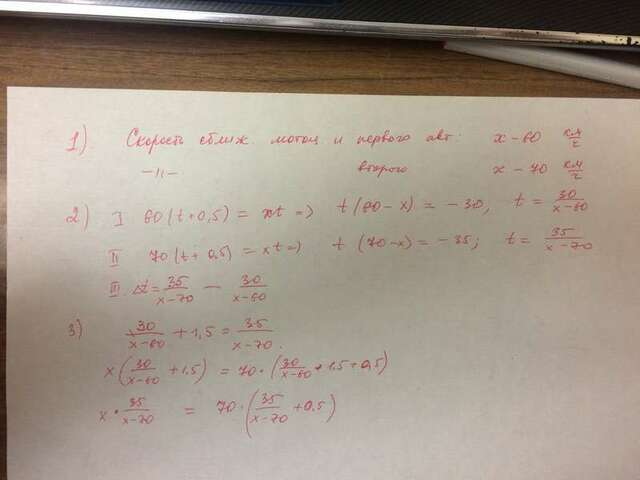 1) Скорость сближ. мотоц и первого авт: x - 60 км/ч
—〃— второго x - 70 км/ч
2) I 60(t+0,5) = xt => t(60-x) = -30, t = 30/(x-60)
II 70(t+0,5) = xt => t(70-x) = -35; t = 35/(x-70)
III. Δt = 35/(x-70) - 30/(x-60)
3) 30/(x-60) + 1,5 = 35/(x-70).
x(30/(x-60) + 1.5) = 70·(30/(x-60) + 1.5 + 0,5)
x · 35/(x-70) = 70·(35/(x-70) + 0,5)